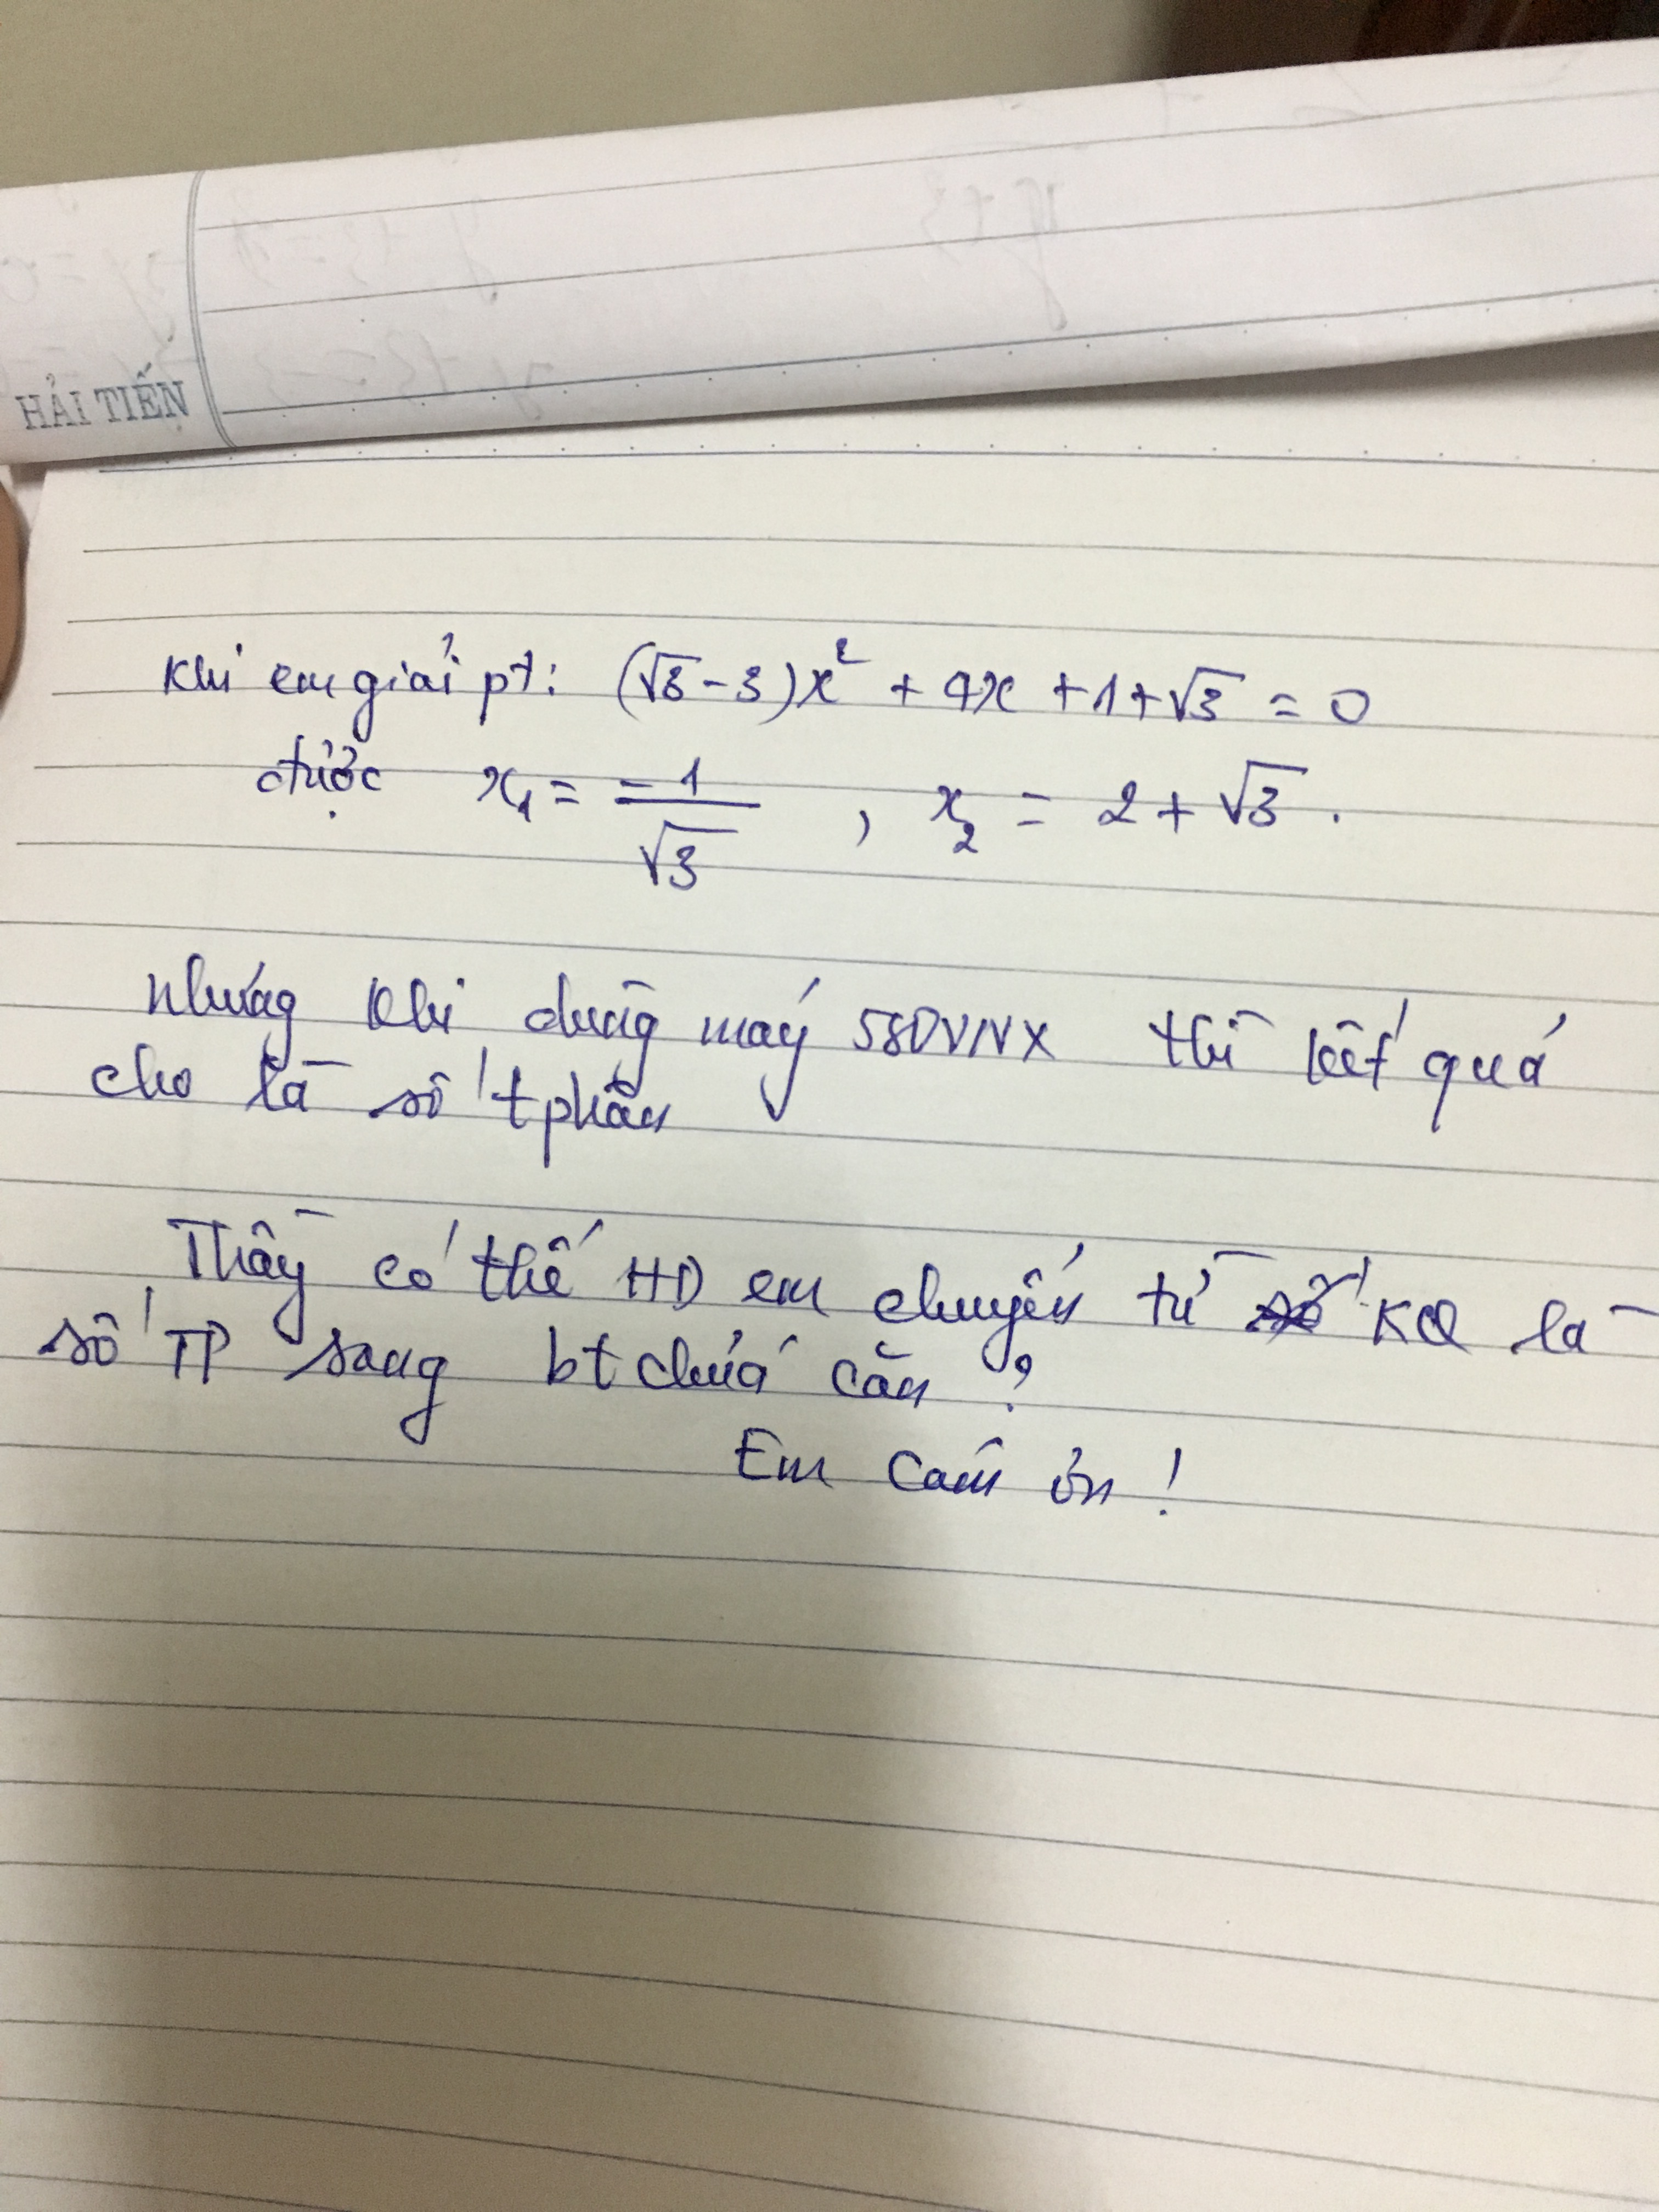 HẢI TIẾN
Khi em giải pt: (√3-3)x² + 4x + 1 + √3 = 0
được x₁ = -1/√3 , x₂ = 2 + √3.
Nhưng khi dùng máy 580VNX thì kết quả
cho là số tphân
Thầy có thể HD em chuyển từ KQ là
số TP sang bt chứa căn?
Em cám ơn!